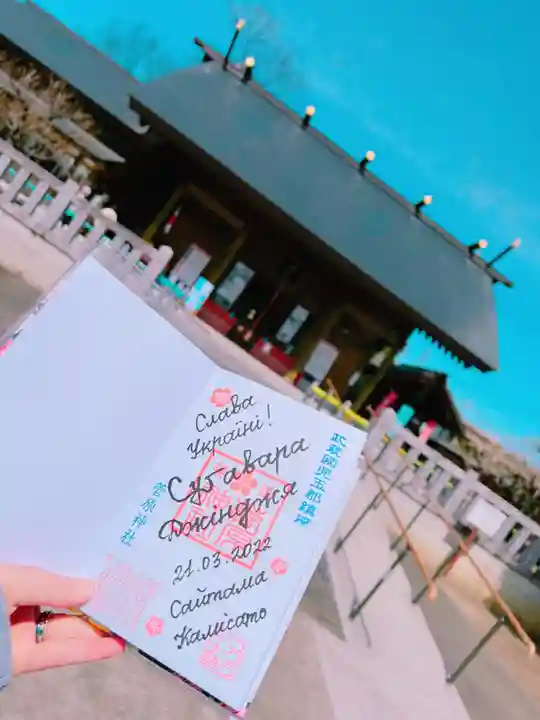 武蔵國児玉郡鎮座
Слава
Україні!
Сугавара
Джінджя
21.03.2022
Сайтама
Камісато
菅原神社